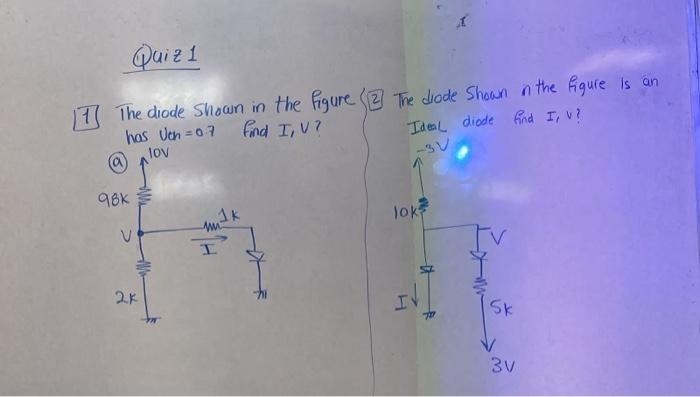 Quiz 1
1 The diode Shown in the figure
has Von = 0.7 find I, V?
a
10V
98K
1K
V
I
2K
2 The diode Shown in the figure is an
Ideal diode find I, V?
-3V
10K
V
I
5K
3V